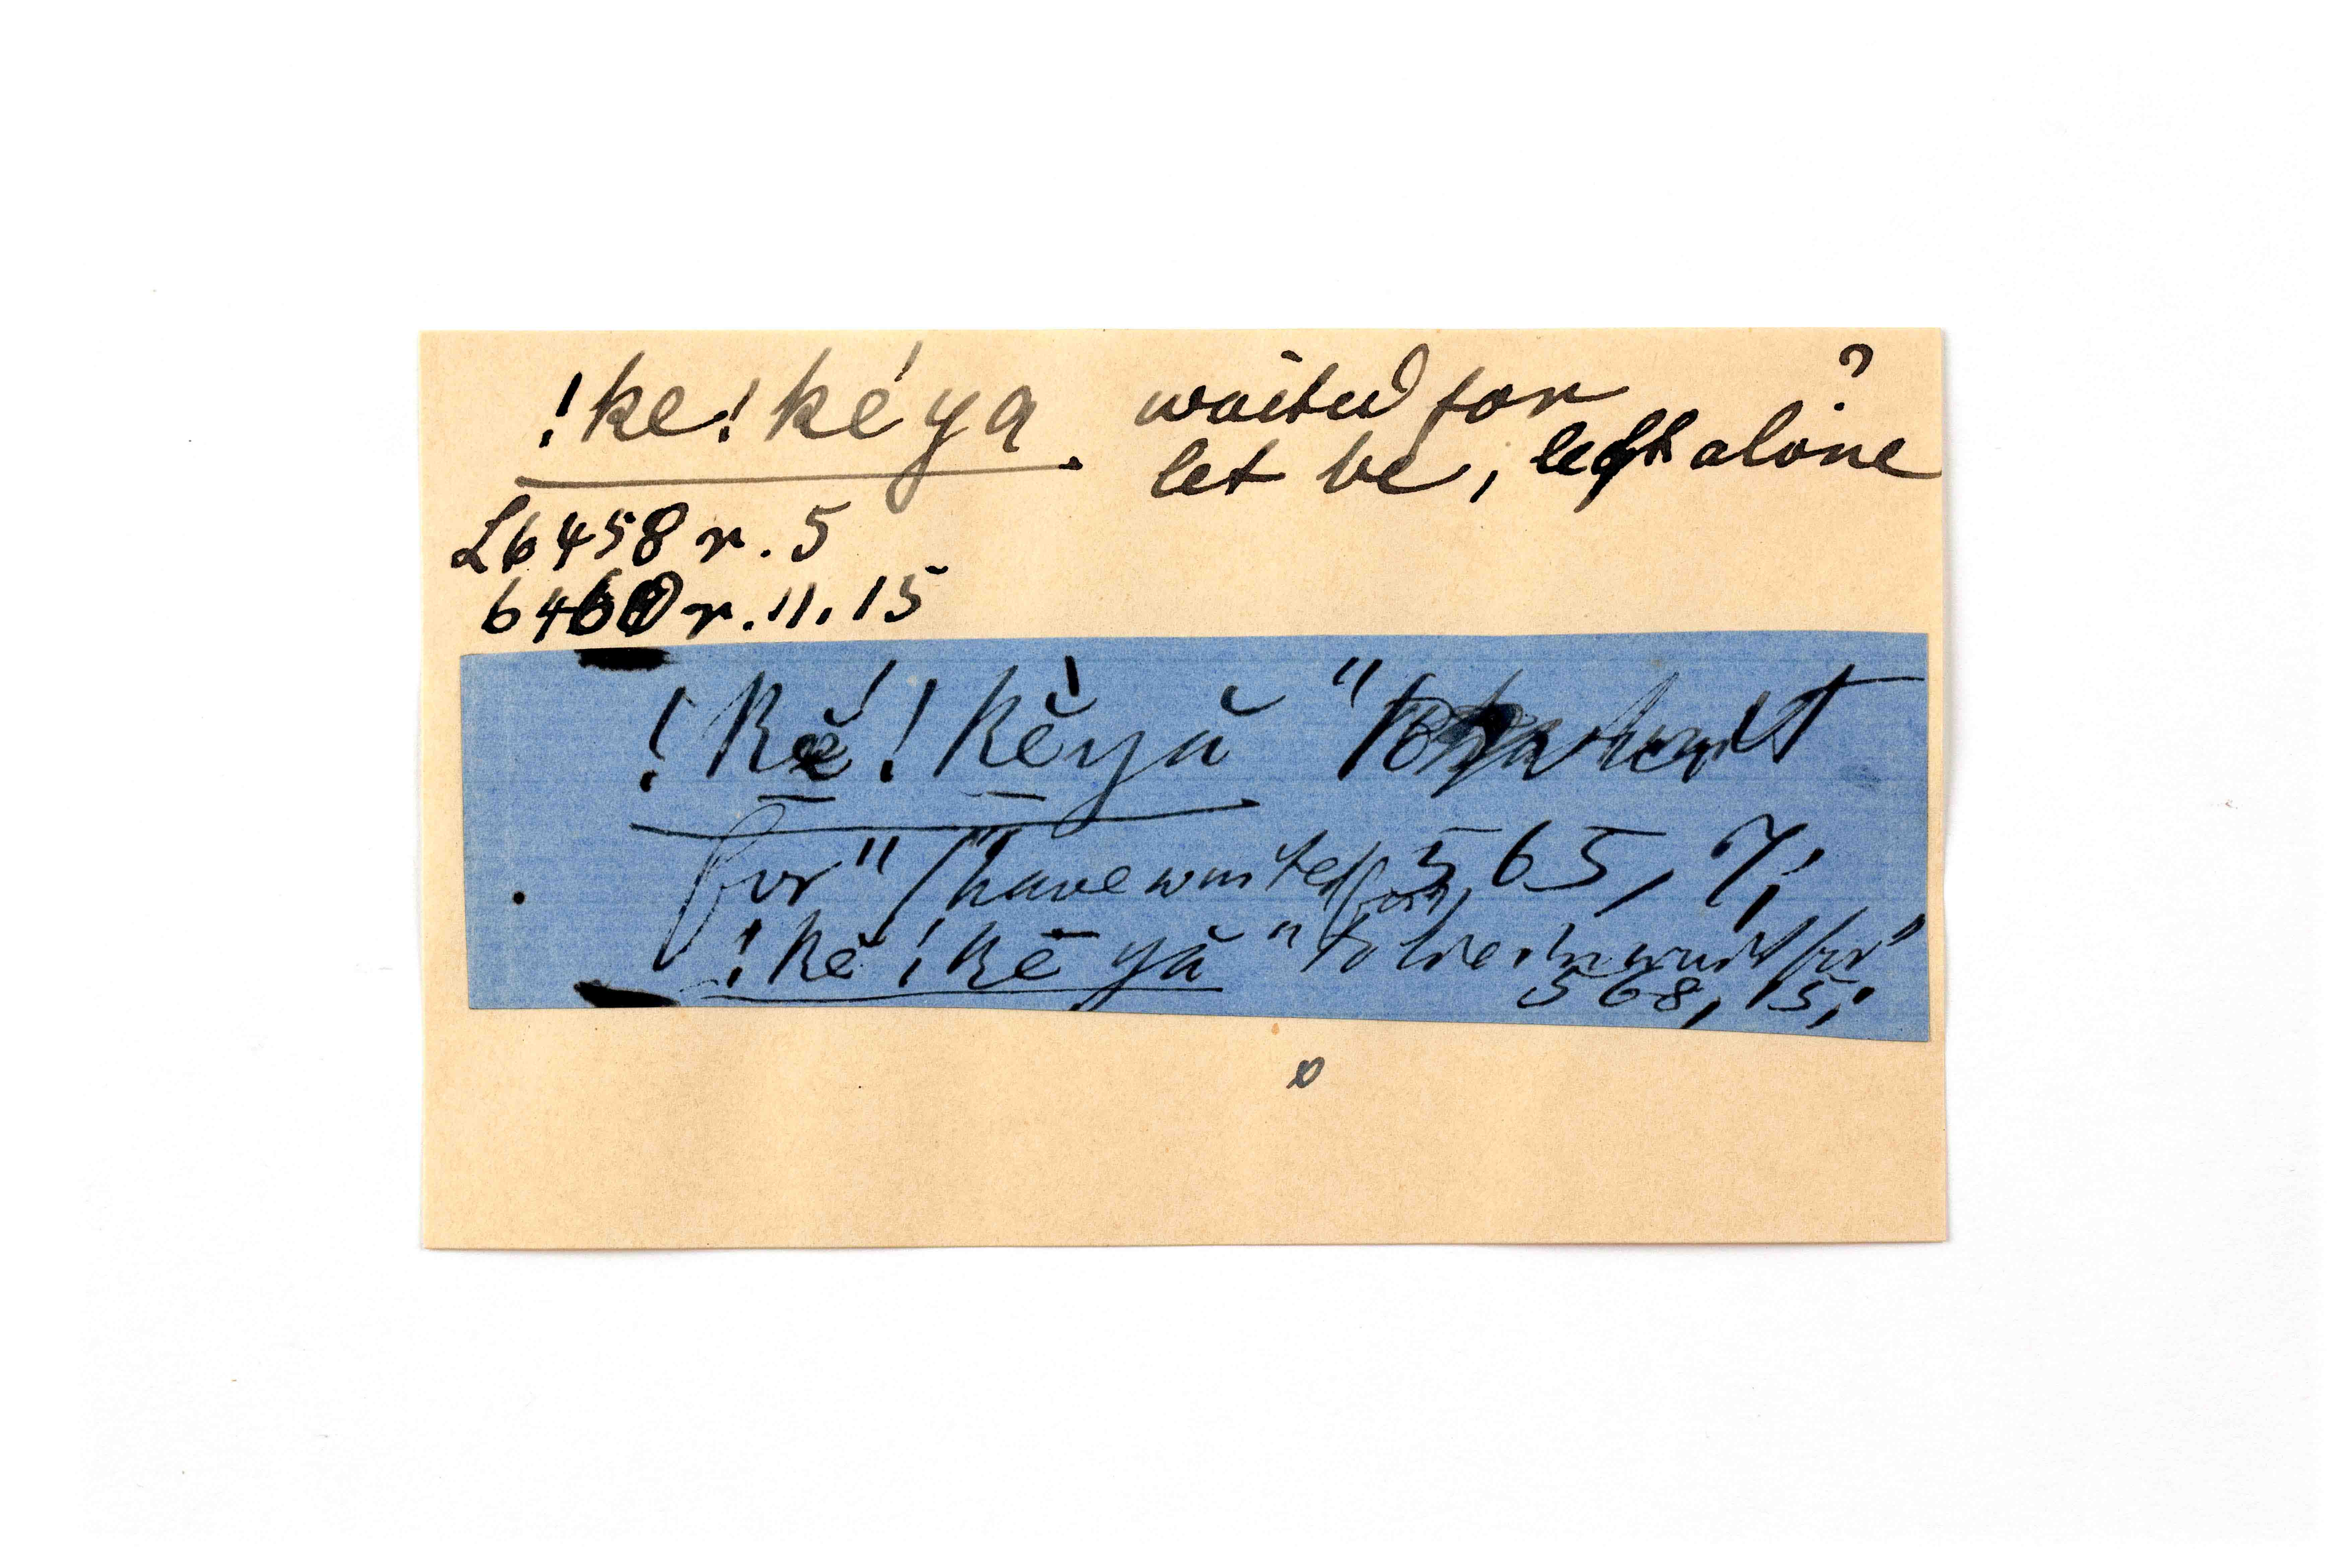 !ke!kéya waited for ?
let be, left alone
L6458 r. 5
6460 r. 11. 15
!kĕ́!kĕ̀yă " wait
for" (have waited for) 565, 7;
!kĕ!kē yă "to lie in wait for"
568, 15;